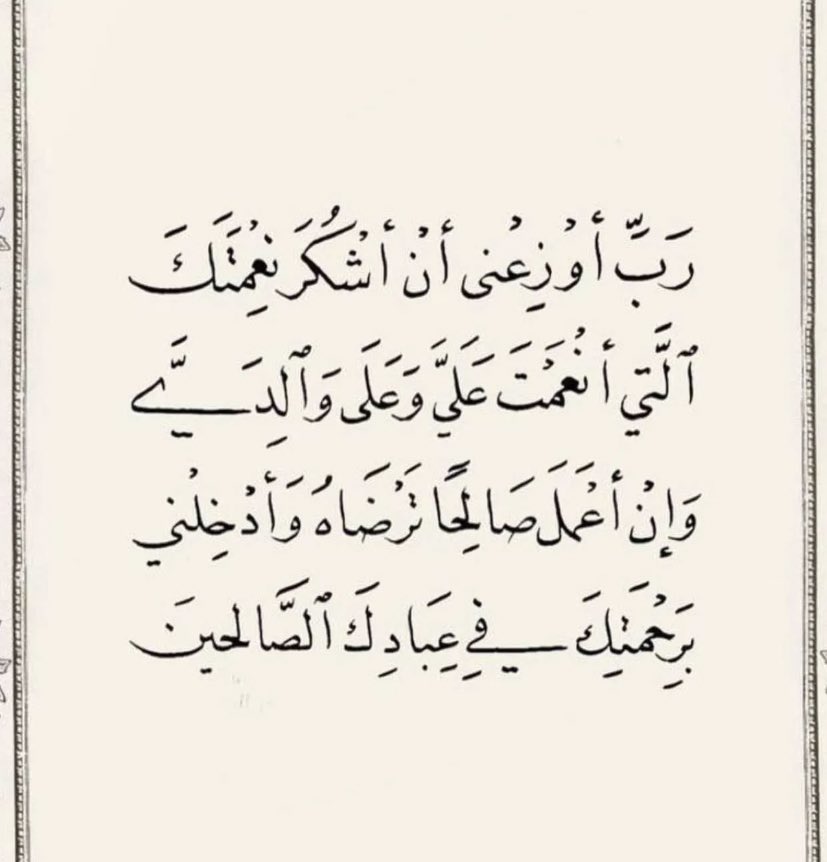 رَبِّ أَوْزِعْنى أَنْ أَشْكُرَ نِعْمَتَكَ
ٱلَّتِي أَنْعَمْتَ عَلَيَّ وَعَلَى وَٱلِدَيَّ
وَإِنْ أَعْمَلَ صَالِحًا تَرْضَاهُ وَأَدْخِلْنِي
بِرَحْمَتِكَ فِي عِبَادِكَ ٱلصَّالِحينَ